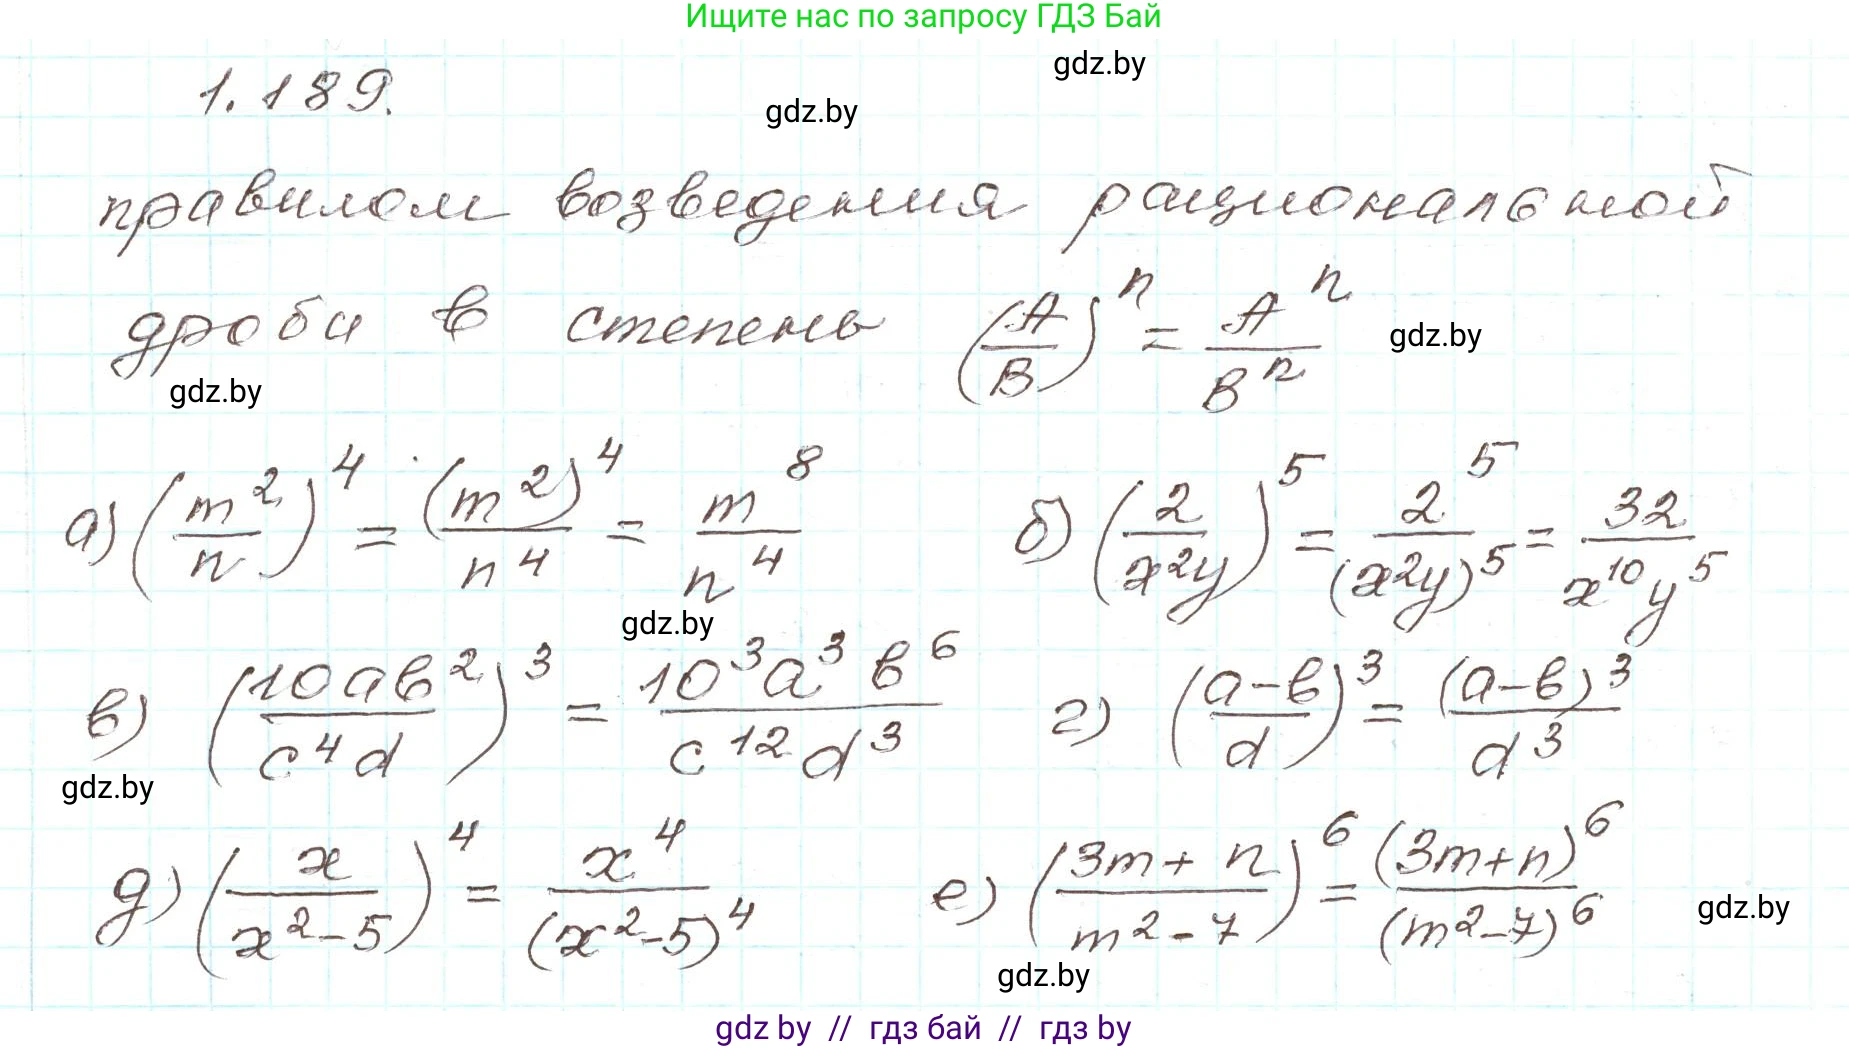 Ищите нас по запросу ГДЗ Бай
gdz.by
1.189.
gdz.by
правилом возведения рациональной
дроби в степень (A/B)^n = A^n/B^n
gdz.by
gdz.by
а) (m^2/n)^4 = (m^2)^4/n^4 = m^8/n^4 б) (2/x^2y)^5 = 2^5/(x^2y)^5 = 32/x^10y^5
gdz.by
в) (10ab^2/c^4d)^3 = 10^3a^3b^6/c^12d^3 г) (a-b/d)^3 = (a-b)^3/d^3
gdz.by
д) (x/x^2-5)^4 = x^4/(x^2-5)^4 е) (3m+n/m^2-7)^6 = (3m+n)^6/(m^2-7)^6
gdz.by
gdz.by
gdz by // гдз бай // гдз by